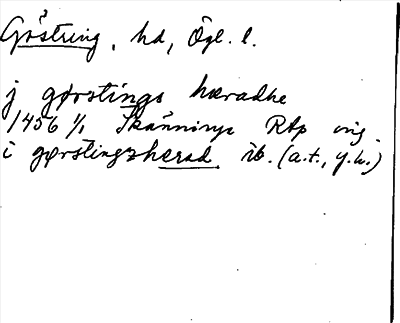 Göstring, hd, Ögl. l.
j gørstings hæradhe
1456 1/1 Skänninge Rtp orig.
i gørstingzherad ib. (a.t., y.h.)